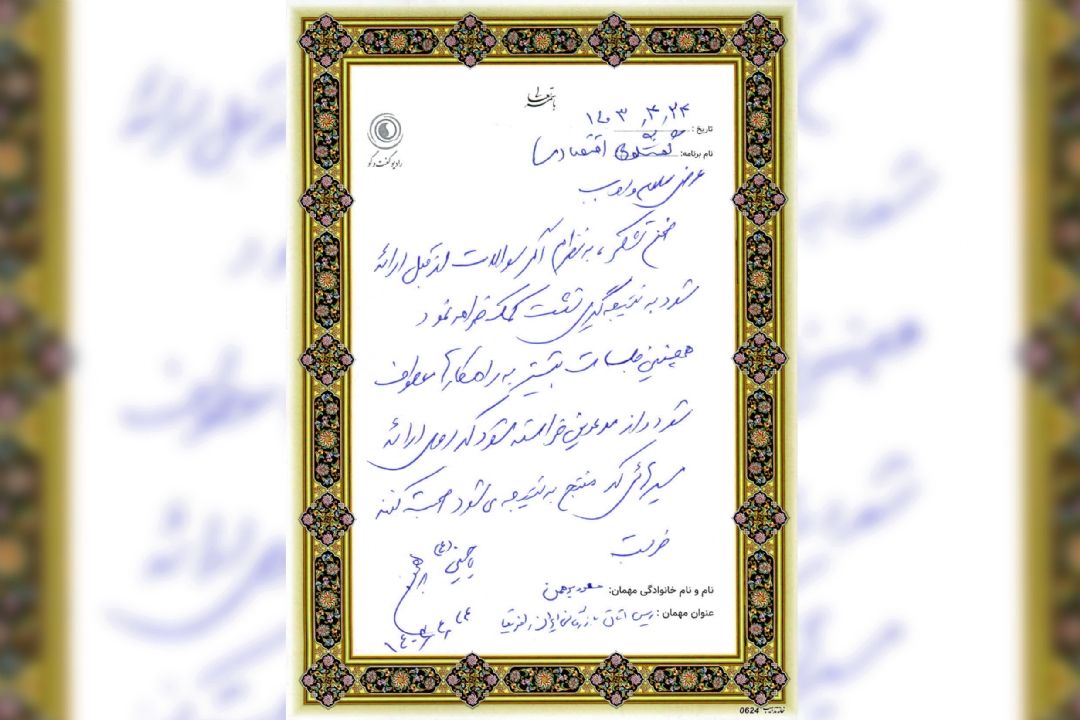 باسمه تعالی
رادیو گفت و گو
تاریخ: ۱۴۰۳/۴/۲۴
نام برنامه: گفتگوی اقتصادی
عرض سلام و ادب
ضمن تشکر، به نظرم اگر سوالات از قبل ارائه
شود به نتیجه گیری نشست کمک خواهد نمود
همچنین جلسات بیشتر به راهکارها معطوف
شود و از مدعوین خواسته شود که روی ارائه
مسیرهائی که منتج به نتیجه می شود صحبت کنند
یا حسین (ع)
نام و نام خانوادگی مهمان: مسعود برهمن
عنوان مهمان: رییس اتاق بازرگانی ایران و افریقا
۱۴۰۳/۴/۲۴
0624